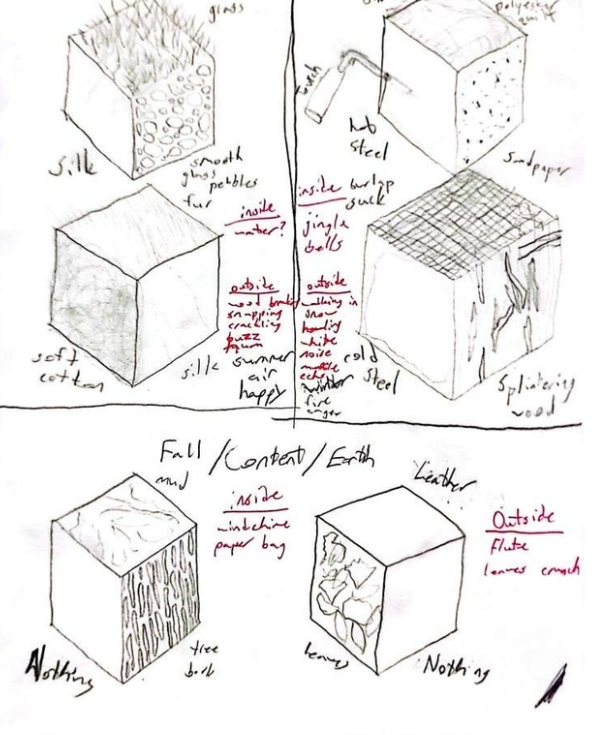 grass
Silk
smooth
glass
pebbles
fur
inside
water?
outside
snapping
crackling
buzz
soft
cotton
silk
summer
air
happy
polyester
quilt
Torch
hot
Steel
Sandpaper
inside
burlap
sack
jingle
bells
outside
walking in
snow
howling
white
noise
cold
Steel
winter
fire
anger
Splintering
wood
Fall/Content/Earth
mud
inside
windchime
paper bag
Nothing
tree
bark
Leather
Outside
flute
leaves crunch
leaves
Nothing